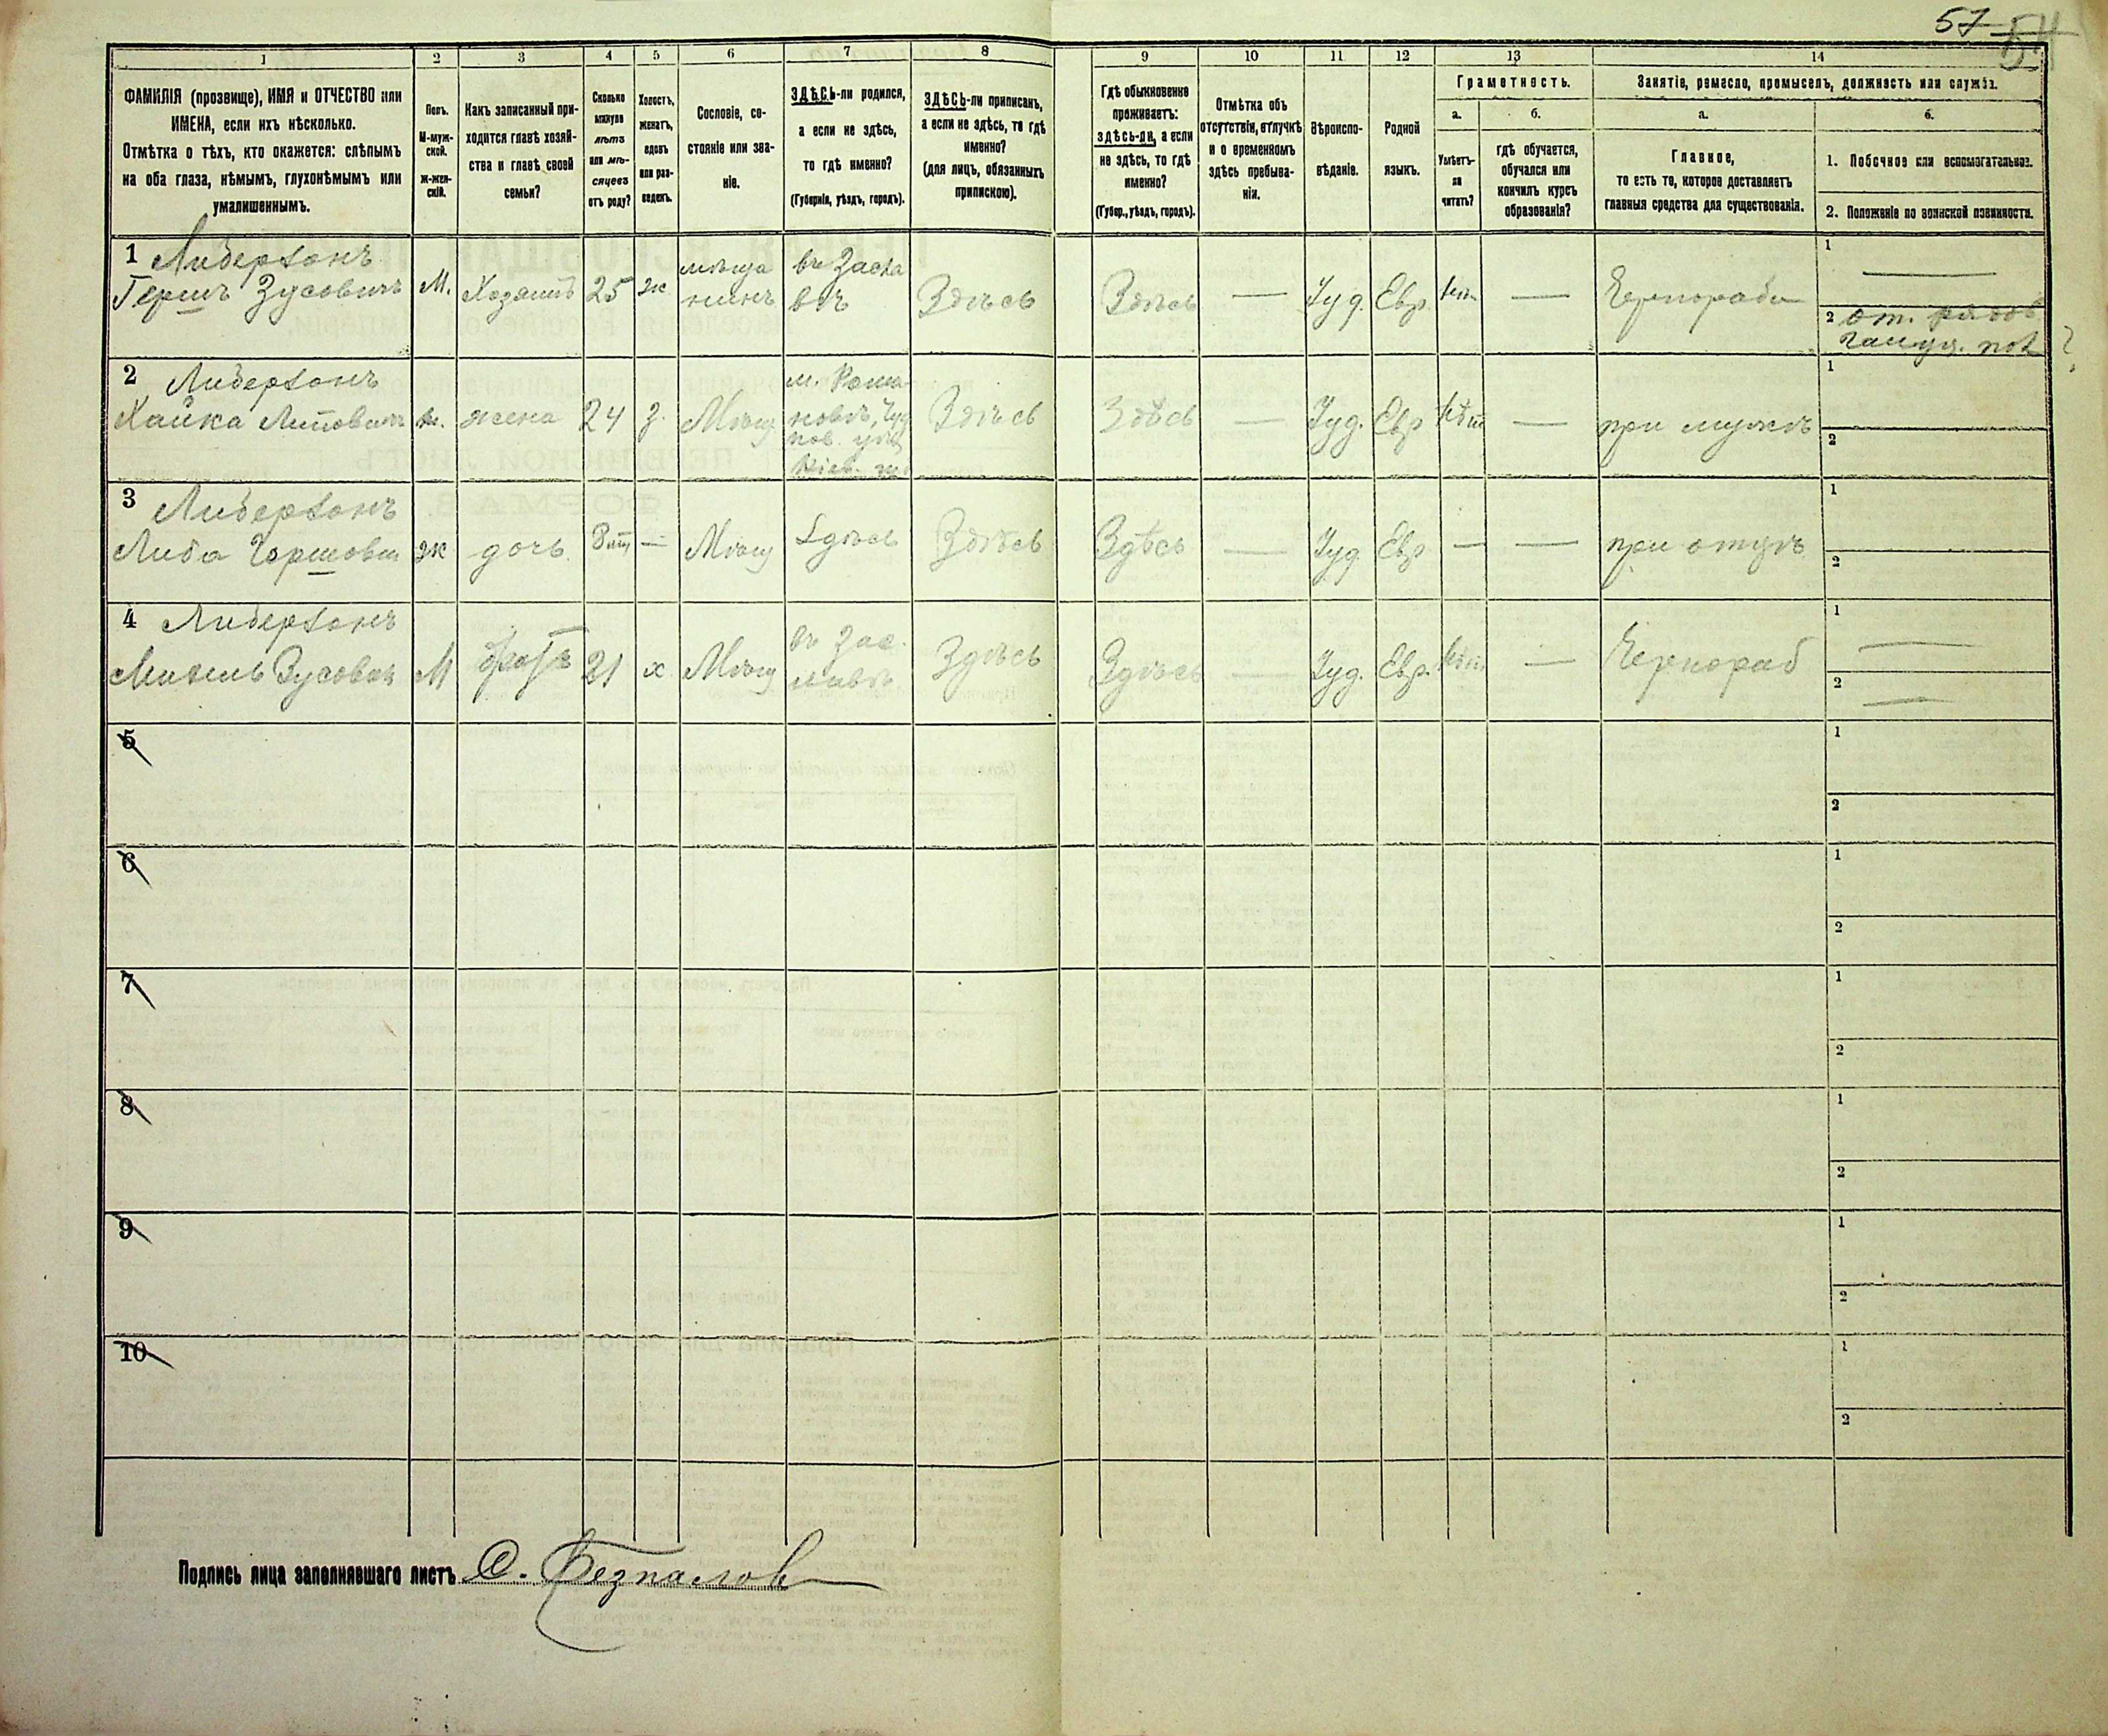 57 54
1 2 3 4 5 6 7 8 9 10 11 12 13 14
ФАМИЛІЯ (прозвище), ИМЯ и ОТЧЕСТВО или
ИМЕНА, если ихъ нѣсколько.
Отмѣтка о тѣхъ, кто окажется: слѣпымъ
на оба глаза, нѣмымъ, глухонѣмымъ или
умалишеннымъ.
Полъ.
М-муж-
ской.
Ж-жен-
скій.
Какъ записанный при-
ходится главѣ хозяй-
ства и главѣ своей
семьи?
Сколько
минуло
лѣтъ
или мѣ-
сяцевъ
отъ роду?
Холостъ,
женатъ,
вдовъ
или раз-
веденъ.
Сословіе, со-
стояніе или зва-
ніе.
ЗДѢСЬ-ли родился,
а если не здѣсь,
то гдѣ именно?
(Губернія, уѣздъ, городъ).
ЗДѢСЬ-ли приписанъ,
а если не здѣсь, то гдѣ
именно?
(для лицъ, обязанныхъ
припискою).
Гдѣ обыкновенно
проживаетъ:
здѣсь-ли, а если
не здѣсь, то гдѣ
именно?
(Губер., уѣздъ, городъ).
Отмѣтка объ
отсутствіи, отлучкѣ
и о временномъ
здѣсь пребыва-
ніи.
Вѣроиспо-
вѣданіе.
Родной
языкъ.
Грамотность.
а. б.
Умѣетъ-
ли
читать?
гдѣ обучается,
обучался или
кончилъ курсъ
образованія?
Занятіе, ремесло, промыселъ, должность или служба.
а. б.
Главное,
то есть то, которое доставляетъ
главныя средства для существованія.
1. Побочное или вспомогательное.
2. Положеніе по воинской повинности.
1 Либерзонъ
Гершъ Зусовичъ М. Хозяинъ 25 ж мѣща
нинъ въ Засла
вѣ Здѣсь Здѣсь — Іуд. Евр. — Чернорабо 1 —
2 от. рядов
?
2 Либерзонъ
Хайка ж. жена 24 з. Мѣщ м. Рома
новѣ, Здѣсь Здѣсь — Іуд. Евр — при мужѣ 1
2
3 Либерзонъ
Либа Гершовна ж дочь — Мѣщ Здѣсь Здѣсь Здѣсь — Іуд. Евр — — при отцѣ 1
2
4 Либерзонъ
Зусовичъ М братъ 21 х Мѣщ въ Зас
лавѣ Здѣсь Здѣсь — Іуд. Евр. — Чернораб 1 —
2 —
5 1
2
6 1
2
7 1
2
8 1
2
9 1
2
10 1
2
Подпись лица заполнявшаго листъ С. Безпалов